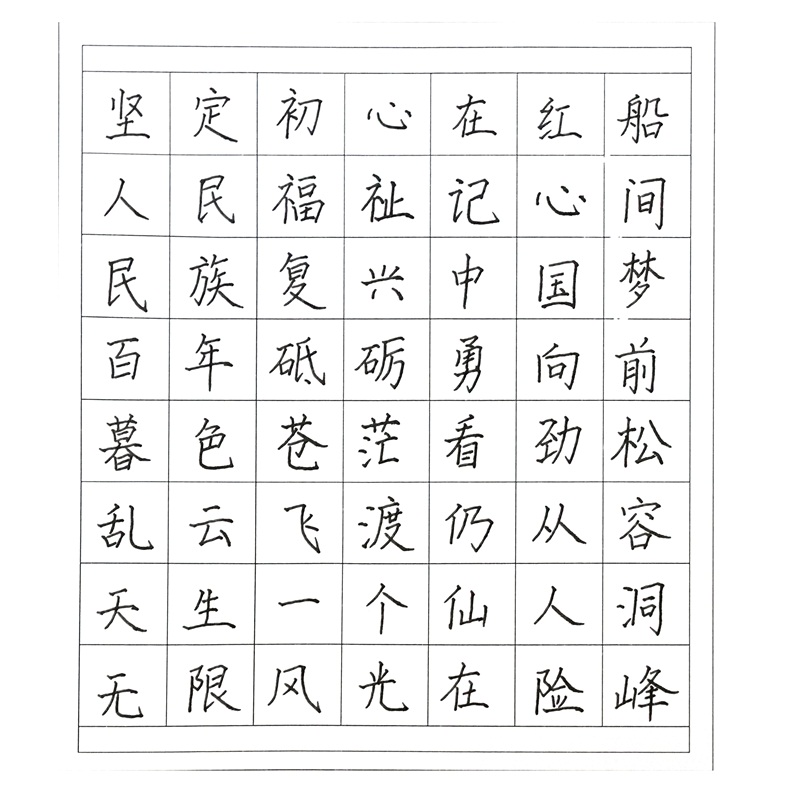 坚定初心在红船
人民福祉记心间
民族复兴中国梦
百年砥砺勇向前
暮色苍茫看劲松
乱云飞渡仍从容
天生一个仙人洞
无限风光在险峰